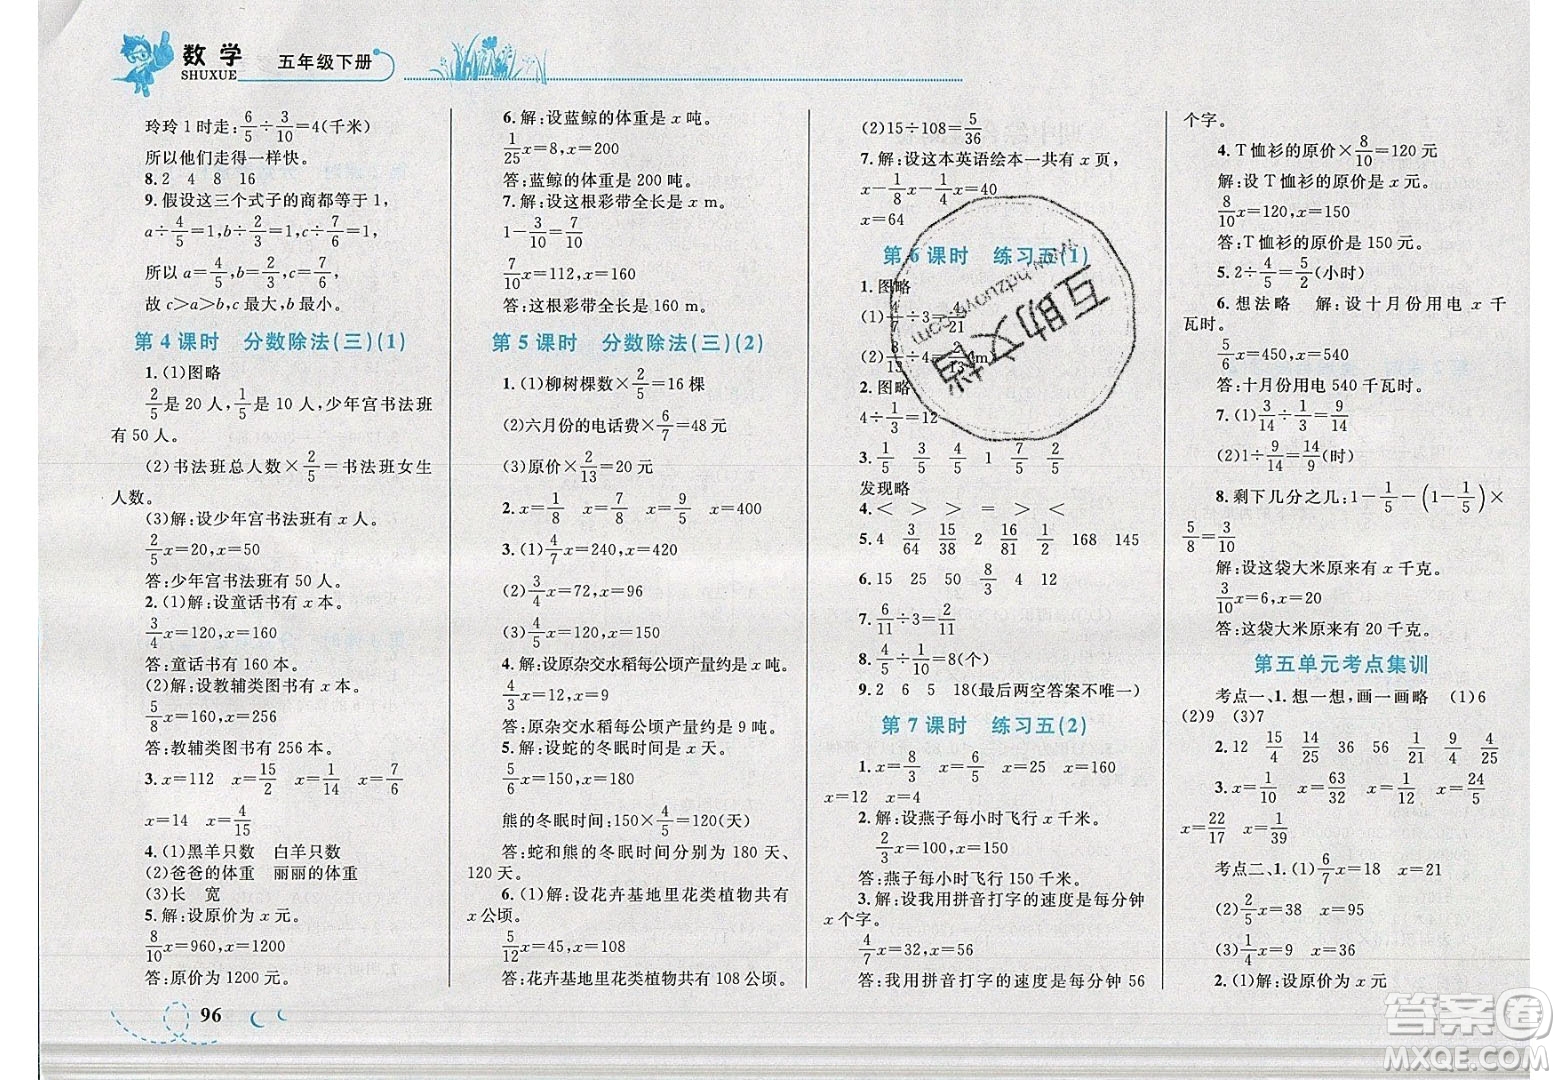 数学
SHUXUE
五年级下册
玲玲1时走:6/5÷3/10=4(千米)
所以他们走得一样快。
8.2 4 8 16
9.假设这三个式子的商都等于1,
a÷4/5=1,b÷2/3=1,c÷5/6=1,
所以a=4/5,b=2/3,c=5/6,
故c>a>b,c最大,b最小。
第4课时 分数除法(三)(1)
1.(1)图略
2/5是20人,1/5是10人,少年宫书法班
有50人。
(2)书法班总人数×2/5=书法班女生
人数。
(3)解:设少年宫书法班有x人。
2/5x=20,x=50
答:少年宫书法班有50人。
2.(1)解:设童话书有x本。
3/4x=120,x=160
答:童话书有160本。
(2)解:设教辅类图书有x本。
5/8x=160,x=256
答:教辅类图书有256本。
3.x=112 x=15/2 x=1/14 x=7/6
x=14 x=4/15
4.(1)黑羊只数 白羊只数
(2)爸爸的体重 丽丽的体重
(3)长 宽
5.解:设原价为x元。
8/10x=960,x=1200
答:原价为1200元。
96
6.解:设蓝鲸的体重是x吨。
1/25x=8,x=200
答:蓝鲸的体重是200吨。
7.解:设这根彩带全长是x m。
1-3/10=7/10
7/10x=112,x=160
答:这根彩带全长是160 m。
第5课时 分数除法(三)(2)
1.(1)柳树棵数×2/5=16棵
(2)六月份的电话费×6/7=48元
(3)原价×2/13=20元
2.x=1/8 x=5/6 x=9/5 x=400
3.(1)4/7x=240,x=420
(2)3/4x=72,x=96
(3)4/5x=120,x=150
4.解:设原杂交水稻每公顷产量约是x吨。
4/3x=12,x=9
答:原杂交水稻每公顷产量约是9吨。
5.解:设蛇的冬眠时间是x天。
5/6x=150,x=180
熊的冬眠时间:150×4/5=120(天)
答:蛇和熊的冬眠时间分别为180天、
120天。
6.(1)解:设花卉基地里花类植物共有
x公顷。
5/12x=45,x=108
答:花卉基地里花类植物共有108公顷。
(2)15÷108=5/36
7.解:设这本英语绘本一共有x页,
x-1/8x-1/4x=40
x=64
第6课时 练习五(1)
1.图略
(1)4/7÷3=4/21
(2)8/13÷4=2/13(m)
2.图略
4÷1/3=12
3.1/5 4/5 4/5 1 5/4 5/4
发现略
4.< > > = > <
5.4 3/64 15/38 2 16/81 1/2 168 145
6.15 25 50 8/3 4 12
7.6/11÷3=2/11
8.4/5÷1/10=8(个)
9.2 6 5 18(最后两空答案不唯一)
第7课时 练习五(2)
1.x=8/3 x=6/5 x=25 x=160
x=12 x=4
2.解:设燕子每小时飞行x千米。
2/3x=100,x=150
答:燕子每小时飞行150千米。
3.解:设我用拼音打字的速度是每分钟
x个字。
4/7x=32,x=56
答:我用拼音打字的速度是每分钟56
个字。
4.T恤衫的原价×8/10=120元
解:设T恤衫的原价是x元。
8/10x=120,x=150
答:T恤衫的原价是150元。
5.2÷4/5=5/2(小时)
6.想法略 解:设十月份用电x千
瓦时。
5/6x=450,x=540
答:十月份用电540千瓦时。
7.(1)3/14÷1/3=9/14
(2)1÷9/14=14/9(时)
8.剩下几分之几:1-1/5-(1-1/5)×
5/8=3/10
解:设这袋大米原来有x千克。
3/10x=6,x=20
答:这袋大米原来有20千克。
第五单元考点集训
考点一、1.想一想,画一画略 (1)6
(2)9 (3)7
2.12 15/4 15/14 36 56 1/21 9/4 4/25
3.x=1/10 x=63/32 x=1/4 x=24/5
x=22/17 x=1/39
考点二、1.(1)6/7x=18 x=21
(2)2/5x=38 x=95
(3)1/4x=9 x=36
2.(1)解:设原价为x元
互助文档
www.hdzuoye.com
答案圈
MXQE.COM